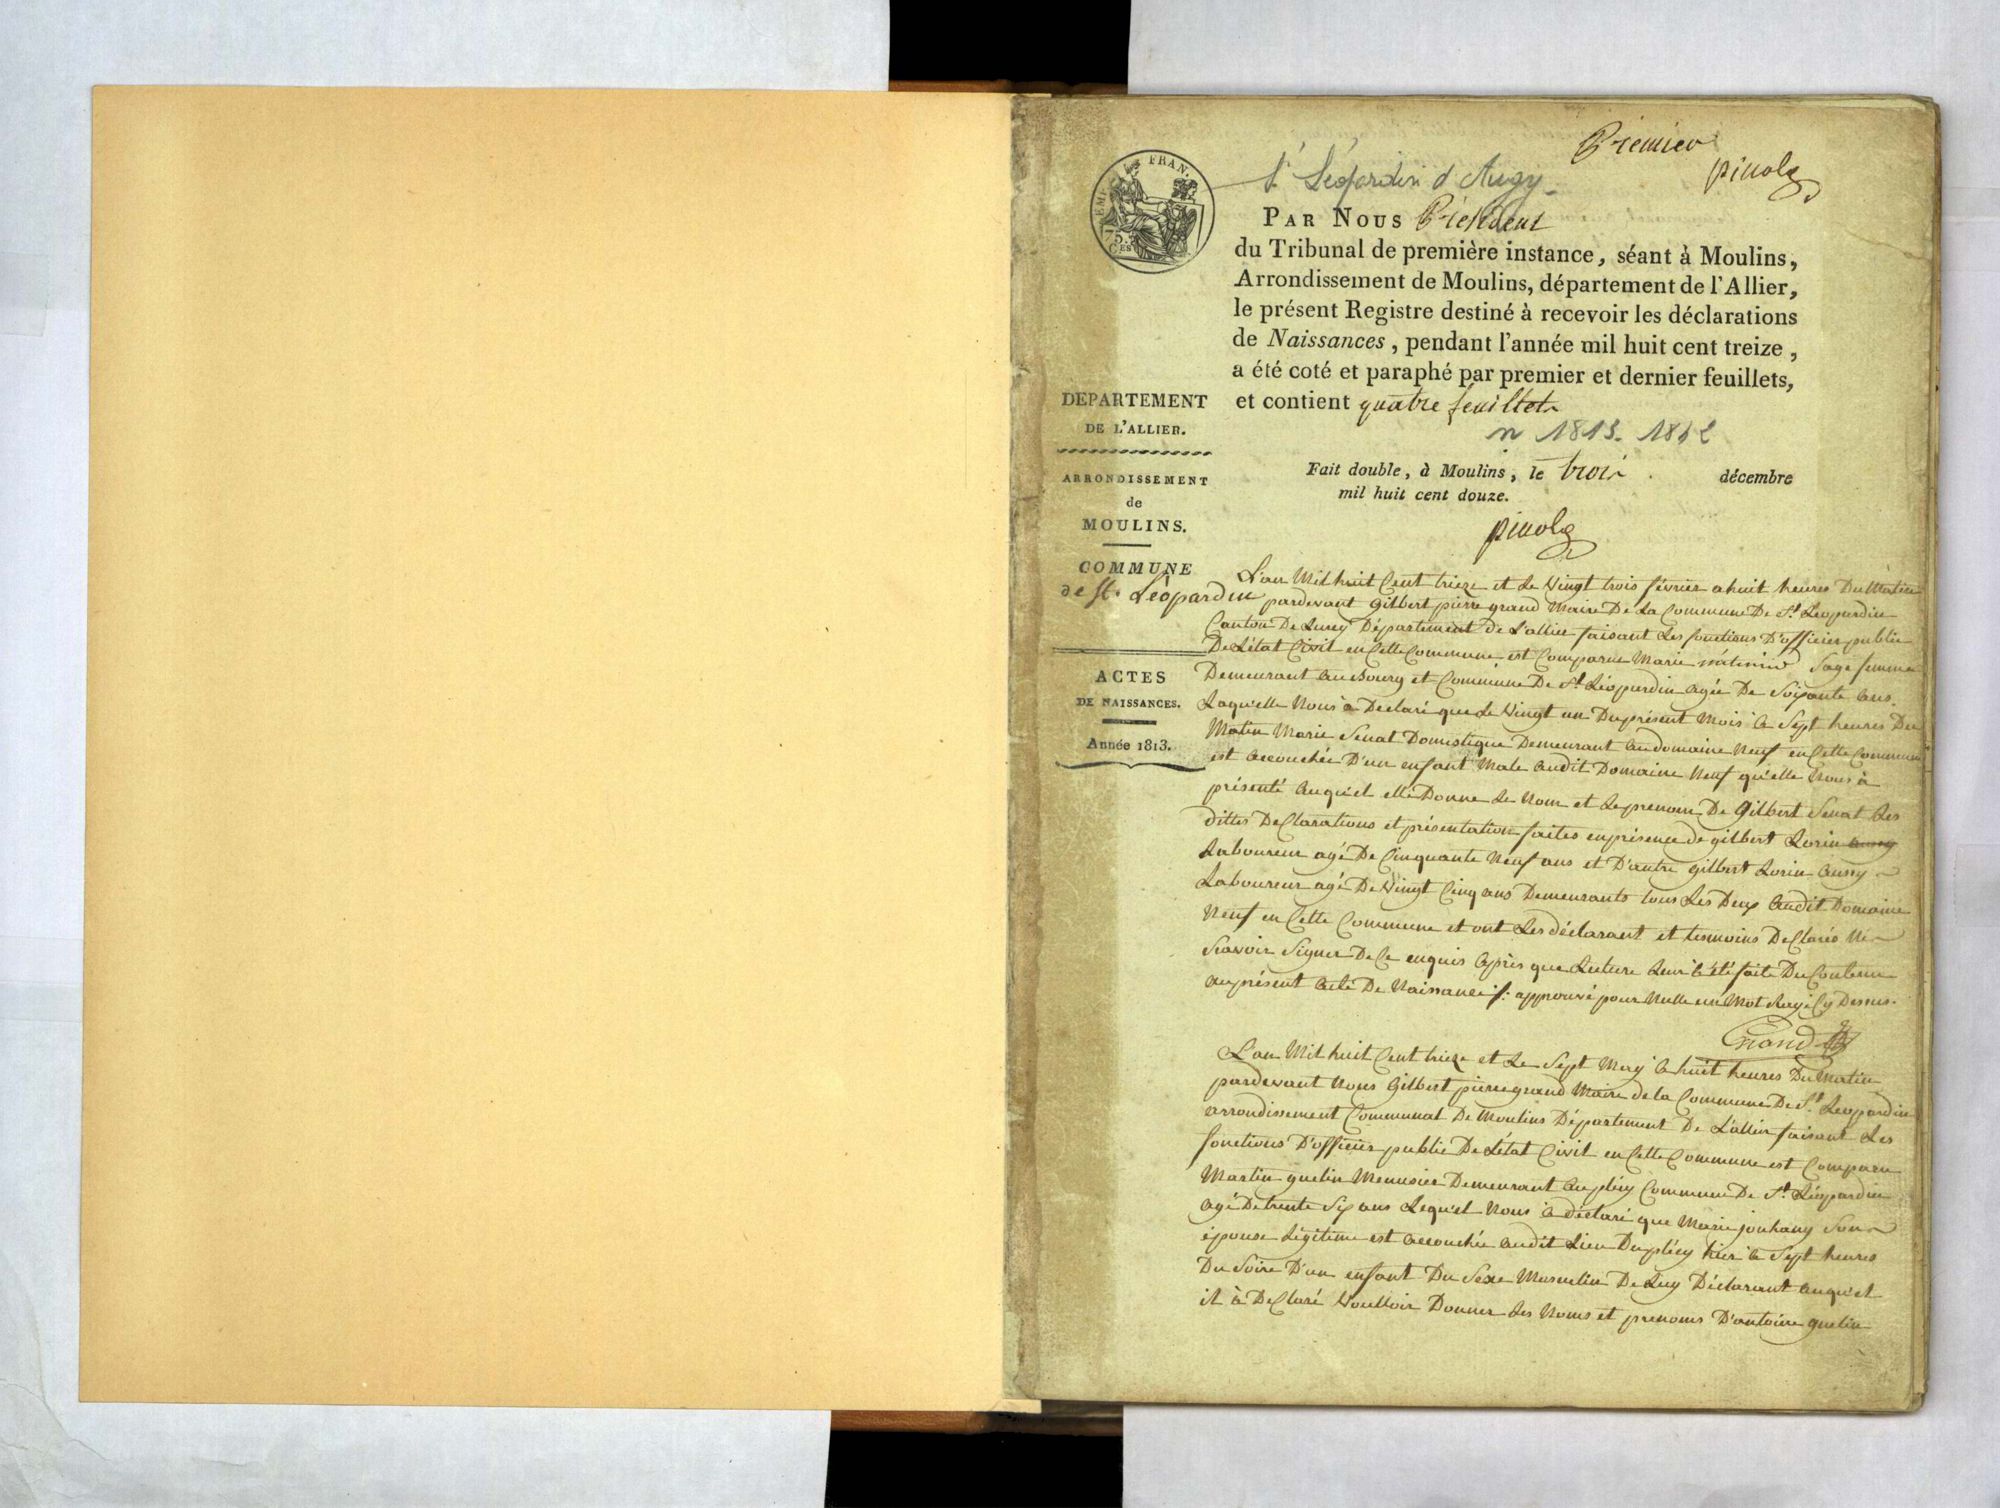 Premier
pinolz
St Léopardin d'Augy
EMPIRE FRAN.
75.
CES
PAR NOUS Président
du Tribunal de première instance, séant à Moulins,
Arrondissement de Moulins, département de l'Allier,
le présent Registre destiné à recevoir les déclarations
de Naissances, pendant l'année mil huit cent treize,
a été coté et paraphé par premier et dernier feuillets,
et contient quatre feuillets
n 1813. 1842
Fait double, à Moulins, le trois décembre
mil huit cent douze.
pinolz
DEPARTEMENT
DE L'ALLIER.
ARRONDISSEMENT
de
MOULINS.
COMMUNE
de St. Léopardin
ACTES
DE NAISSANCES.
Année 1813.
L'an Mil huit Cent treize et Le Vingt trois février a huit heures Du Matin
pardevant gilbert pierre grand Maire De La Commune De St. Leopardin
Canton De Lurcy Département de L'allier faisant Les fonctions D'officier public
De L'état Civil en Cette Commune est Comparue Marie Sage femme
Demeurant Au Bourg et Commune De St. Léopardin agée De Soixante ans.
Laquelle Nous à Declaré que Le Vingt un Du présent Mois à Sept heures Du
Matin Marie Senat Domestique Demeurant Au domaine Neuf en Cette Commune
est accouchée D'un enfant Male Audit Domaine Neuf qu'elle Nous à
présenté Auquel elle Donne Le Nom et Le prenom De Gilbert Senat Les
dittes Declarations et présentation faites en présence de gilbert Lorin aussy
Laboureur agé De Cinquante Neuf ans et D'autre gilbert Lorin Aussy
Laboureur agé De Vingt Cinq ans Demeurants tous Les Deux Audit Domaine
Neuf en Cette Commune et ont Les déclarant et temoins Declarés Ne
Scavoir Signer De Ce enquis Après que Lecture Leur à été faite Du Contenu
au présent acte De Naissance /: approuvé pour Nulle un Mot Rayé Cy Dessus.
Grand
L'an Mil huit Cent treize et Le Sept May à huit heures Du Matin
pardevant Nous Gilbert pierre grand Maire de la Commune De St. Leopardin
arrondissement Communal De Moulins Département De L'allier faisant Les
fonctions D'officier public De L'état Civil en Cette Commune est Comparu
Martin quelin Menusier Demeurant Au plécy Commune De St. Léopardin
agé De trente Six ans Lequel Nous à déclaré que Marie jouhany Son
épouse Légitime est accouchée audit Lieu Du plécy hier à Sept heures
Du Soire D'un enfant Du Sexe Masculin De Luy Déclarant Auquel
il à Declaré Voulloir Donner Les Noms et prenoms D'antoine quelin